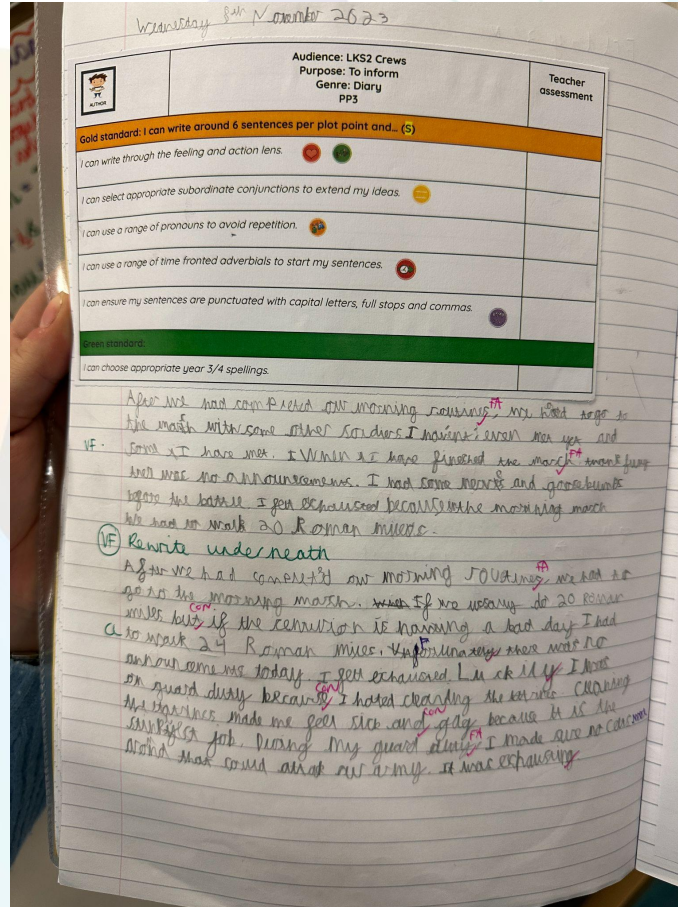 Wednesday 8th November 2023
Audience: LKS2 Crews
Purpose: To inform
Genre: Diary
PP3
Teacher assessment
AUTHOR
Gold standard: I can write around 6 sentences per plot point and... (S)
I can write through the feeling and action lens.
I can select appropriate subordinate conjunctions to extend my ideas.
I can use a range of pronouns to avoid repetition.
I can use a range of time fronted adverbials to start my sentences.
I can ensure my sentences are punctuated with capital letters, full stops and commas.
Green standard:
I can choose appropriate year 3/4 spellings.
FA
After we had completed our morning routines, we had to go to
the march with some other soldiers I haven't even met yet and
VF. some I have met. When I have finished the march
FA
ther was no announcements. I had some nerves and goosebumbs
before the battle. I felt exhausted because the morning march
We had to walk 20 Roman
VF Rewrite underneath
FA
After we had our morning routines, we had to
go to the morning march. If we do 20 Roman
miles but if the is having a bad day I had
CON
a to walk 24 Roman miles. there was no
today. I felt exhausted. Luckily I was
on guard duty because I hated cleaning the Cleaning
CON
the made me feel sick and gag because it is the
CON
job. During my guard duty, I made sure no
FA
that could our army. It was exhausting.